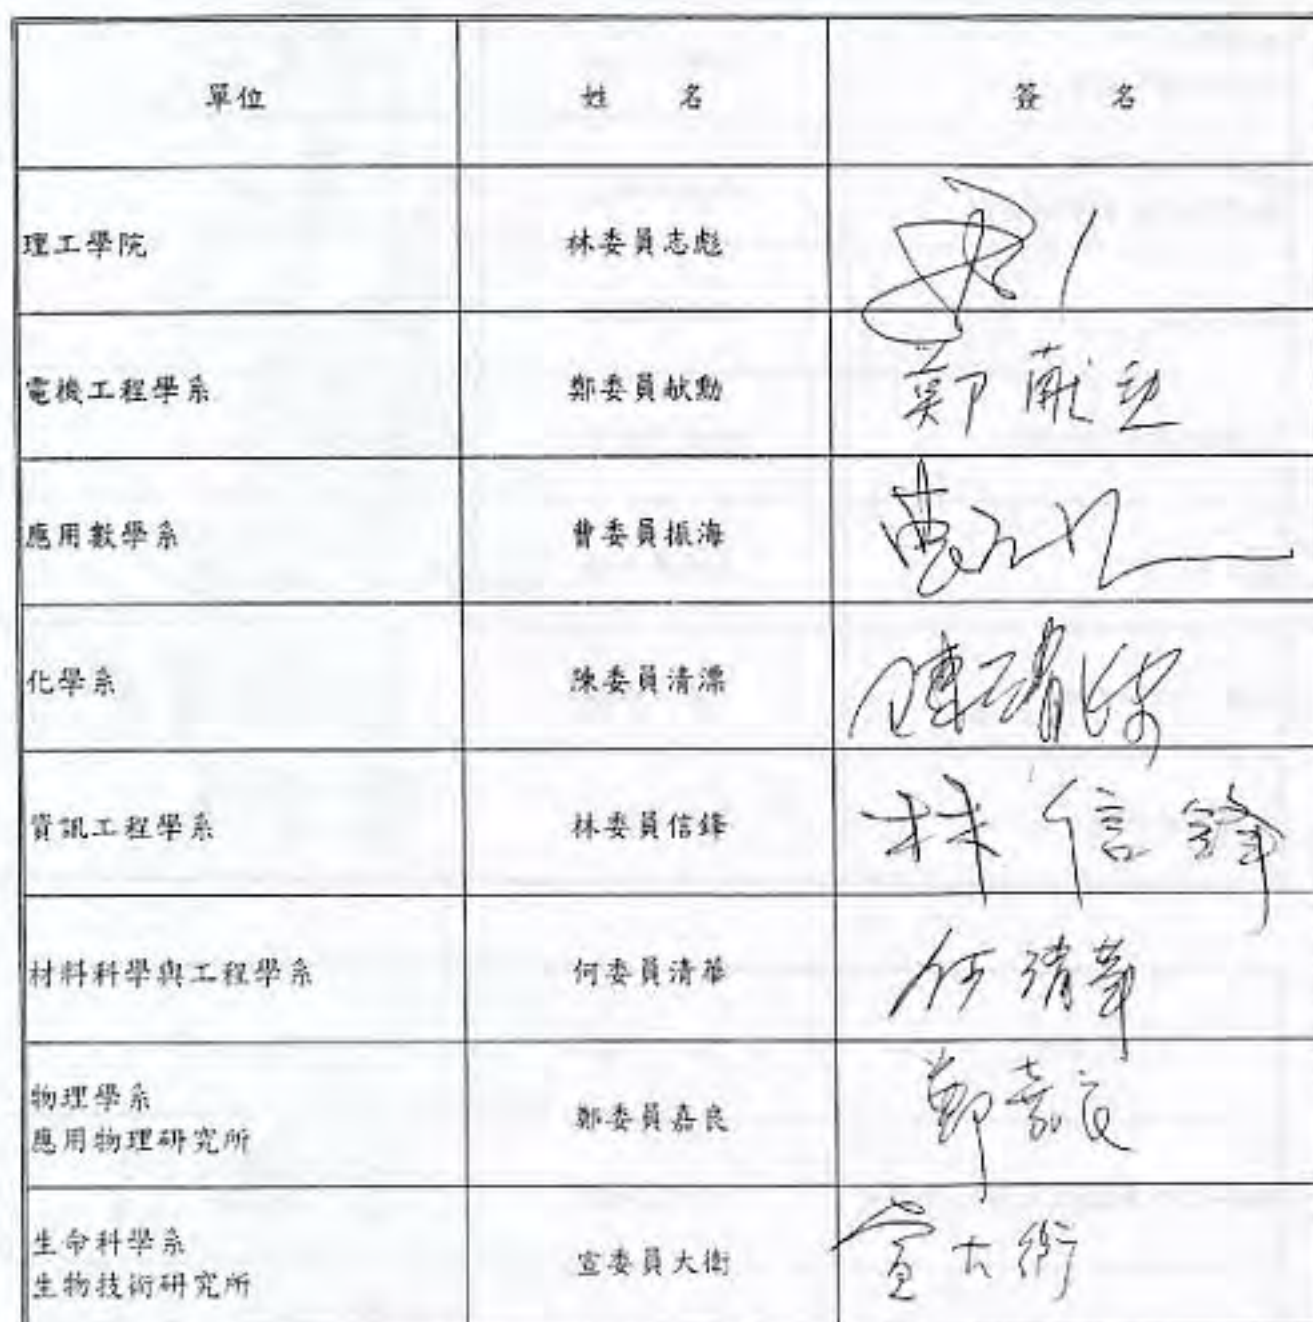 單位 姓 名 簽 名
理工學院 林委員志彪
電機工程學系 鄭委員献勳 鄭献勳
應用數學系 曹委員振海 曹振海
化學系 陳委員清漂 陳清漂
資訊工程學系 林委員信鋒 林信鋒
材料科學與工程學系 何委員清華 何清華
物理學系
應用物理研究所 鄭委員嘉良 鄭嘉良
生命科學系
生物技術研究所 宣委員大衛 宣大衛